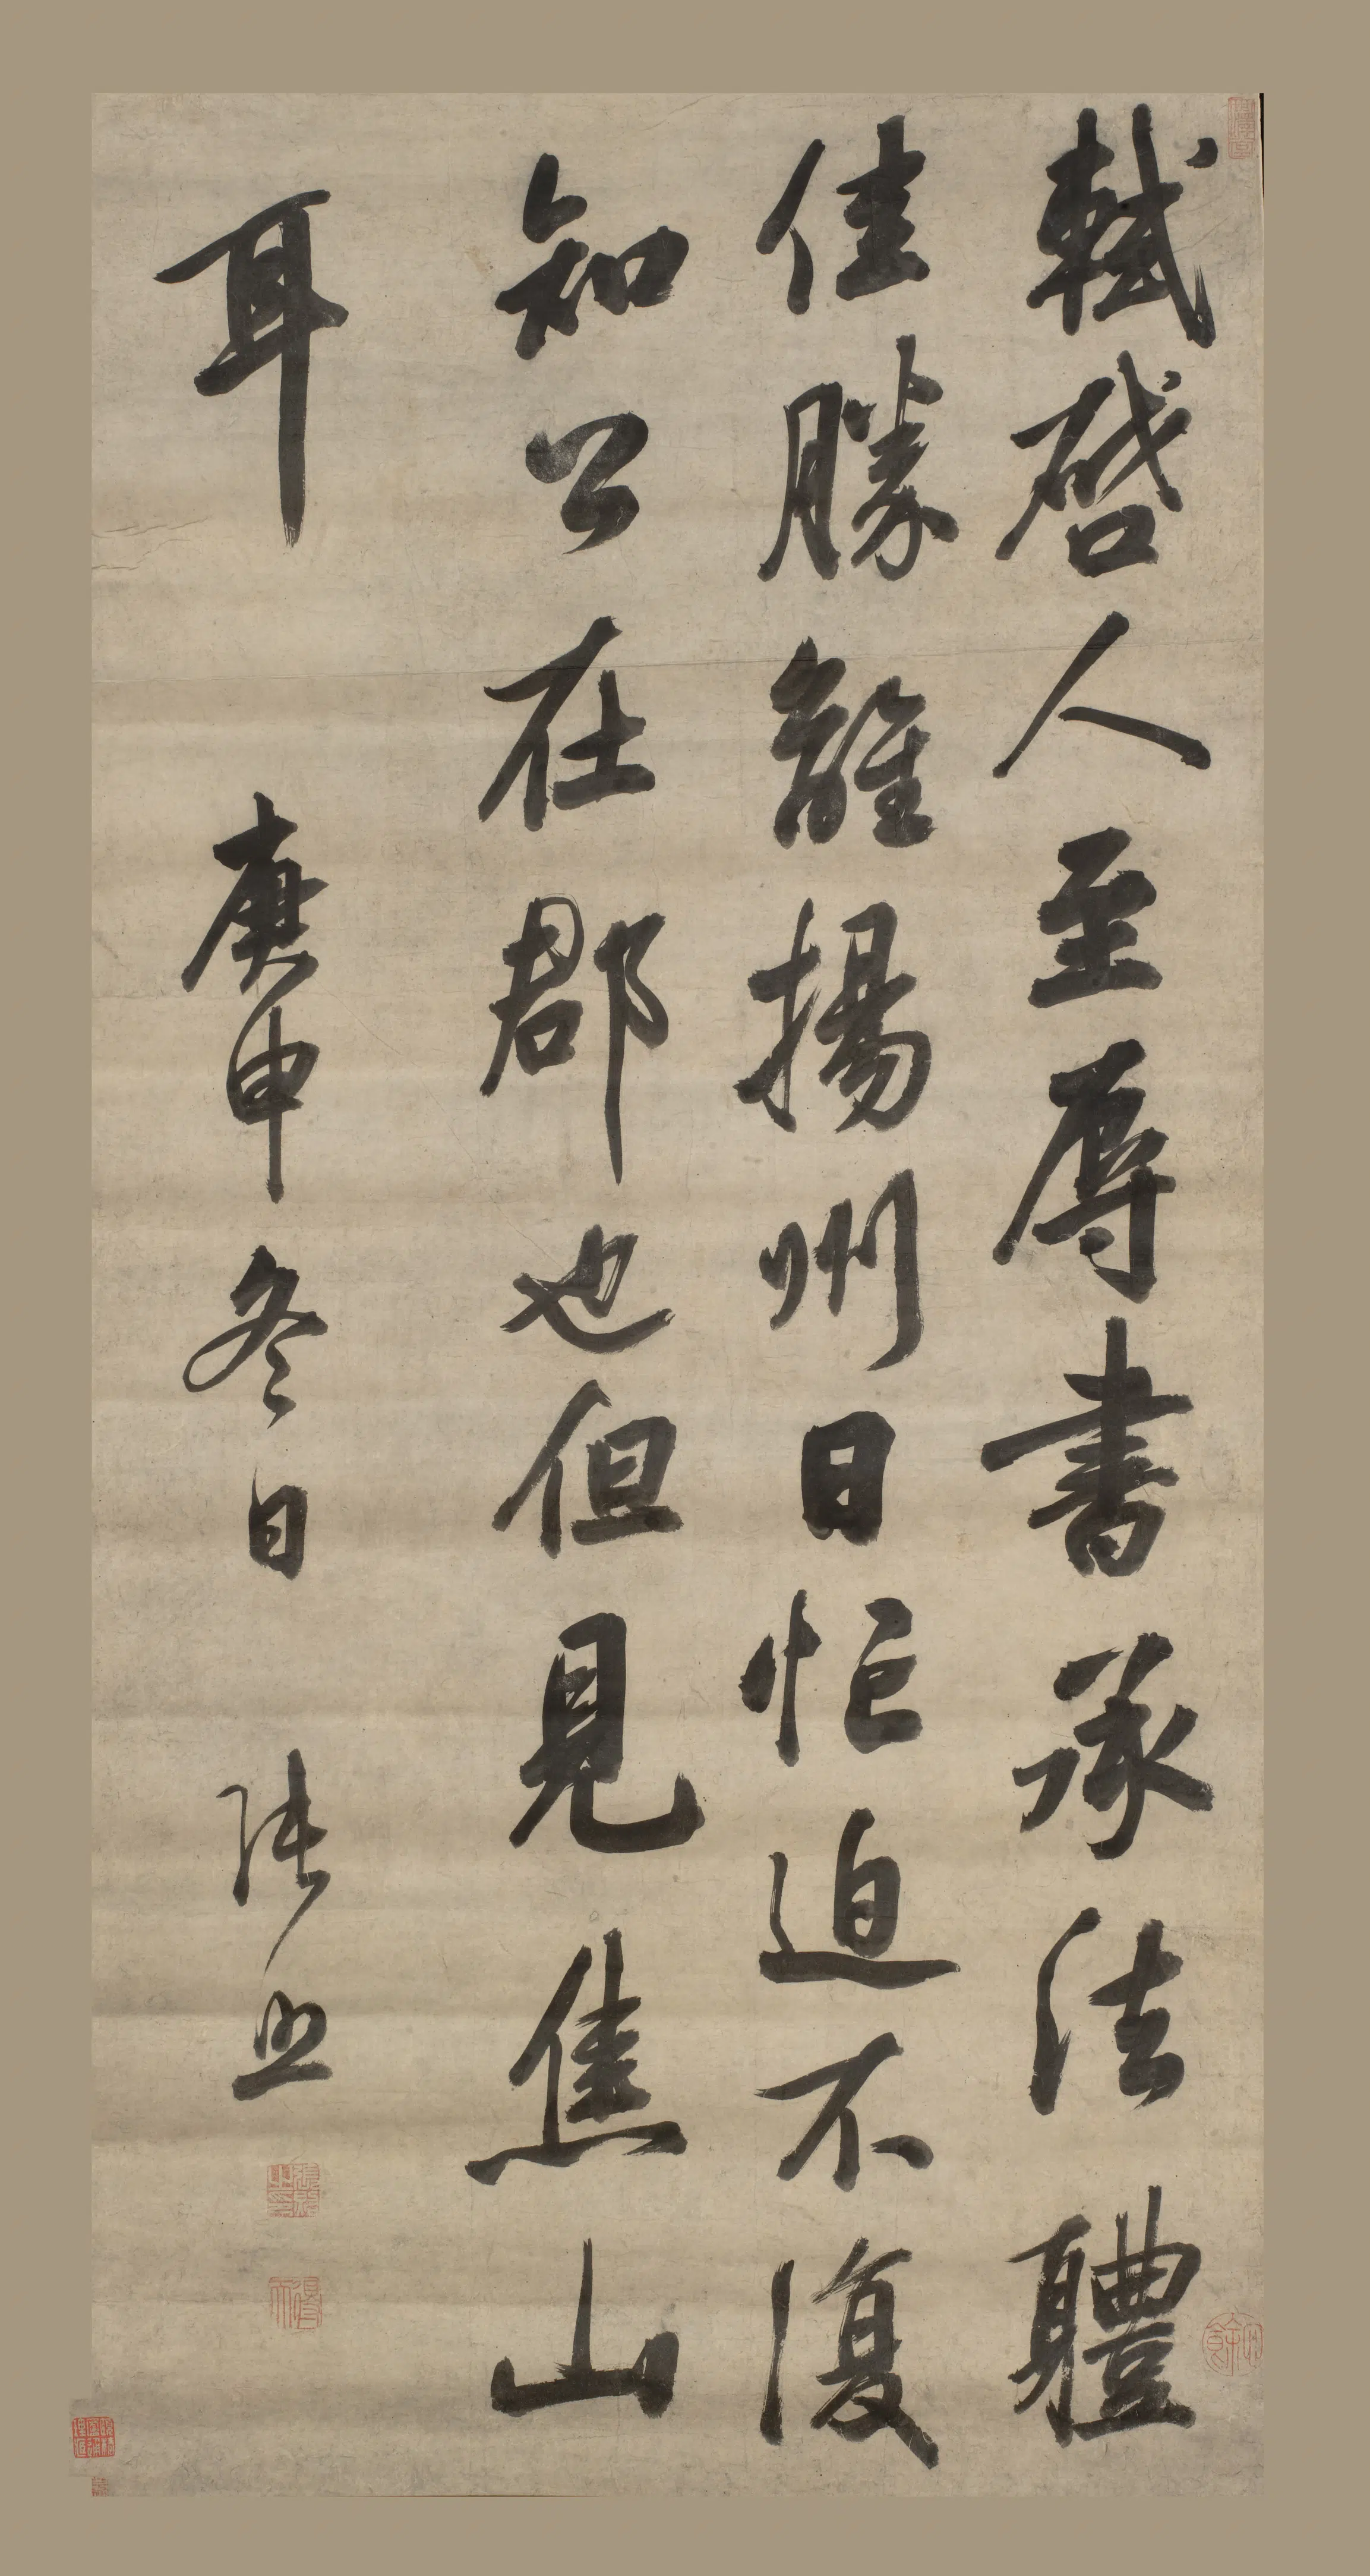 軾啓人至辱書承法體
佳勝離揚州日怱迫不復
知公在郡也但見焦山
耳
庚申冬日 張照